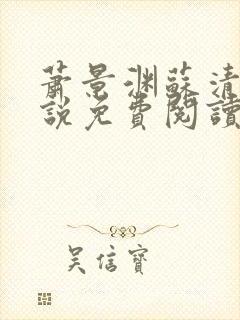 蕭景渊蘇清
說免費閱讀
吴信寶